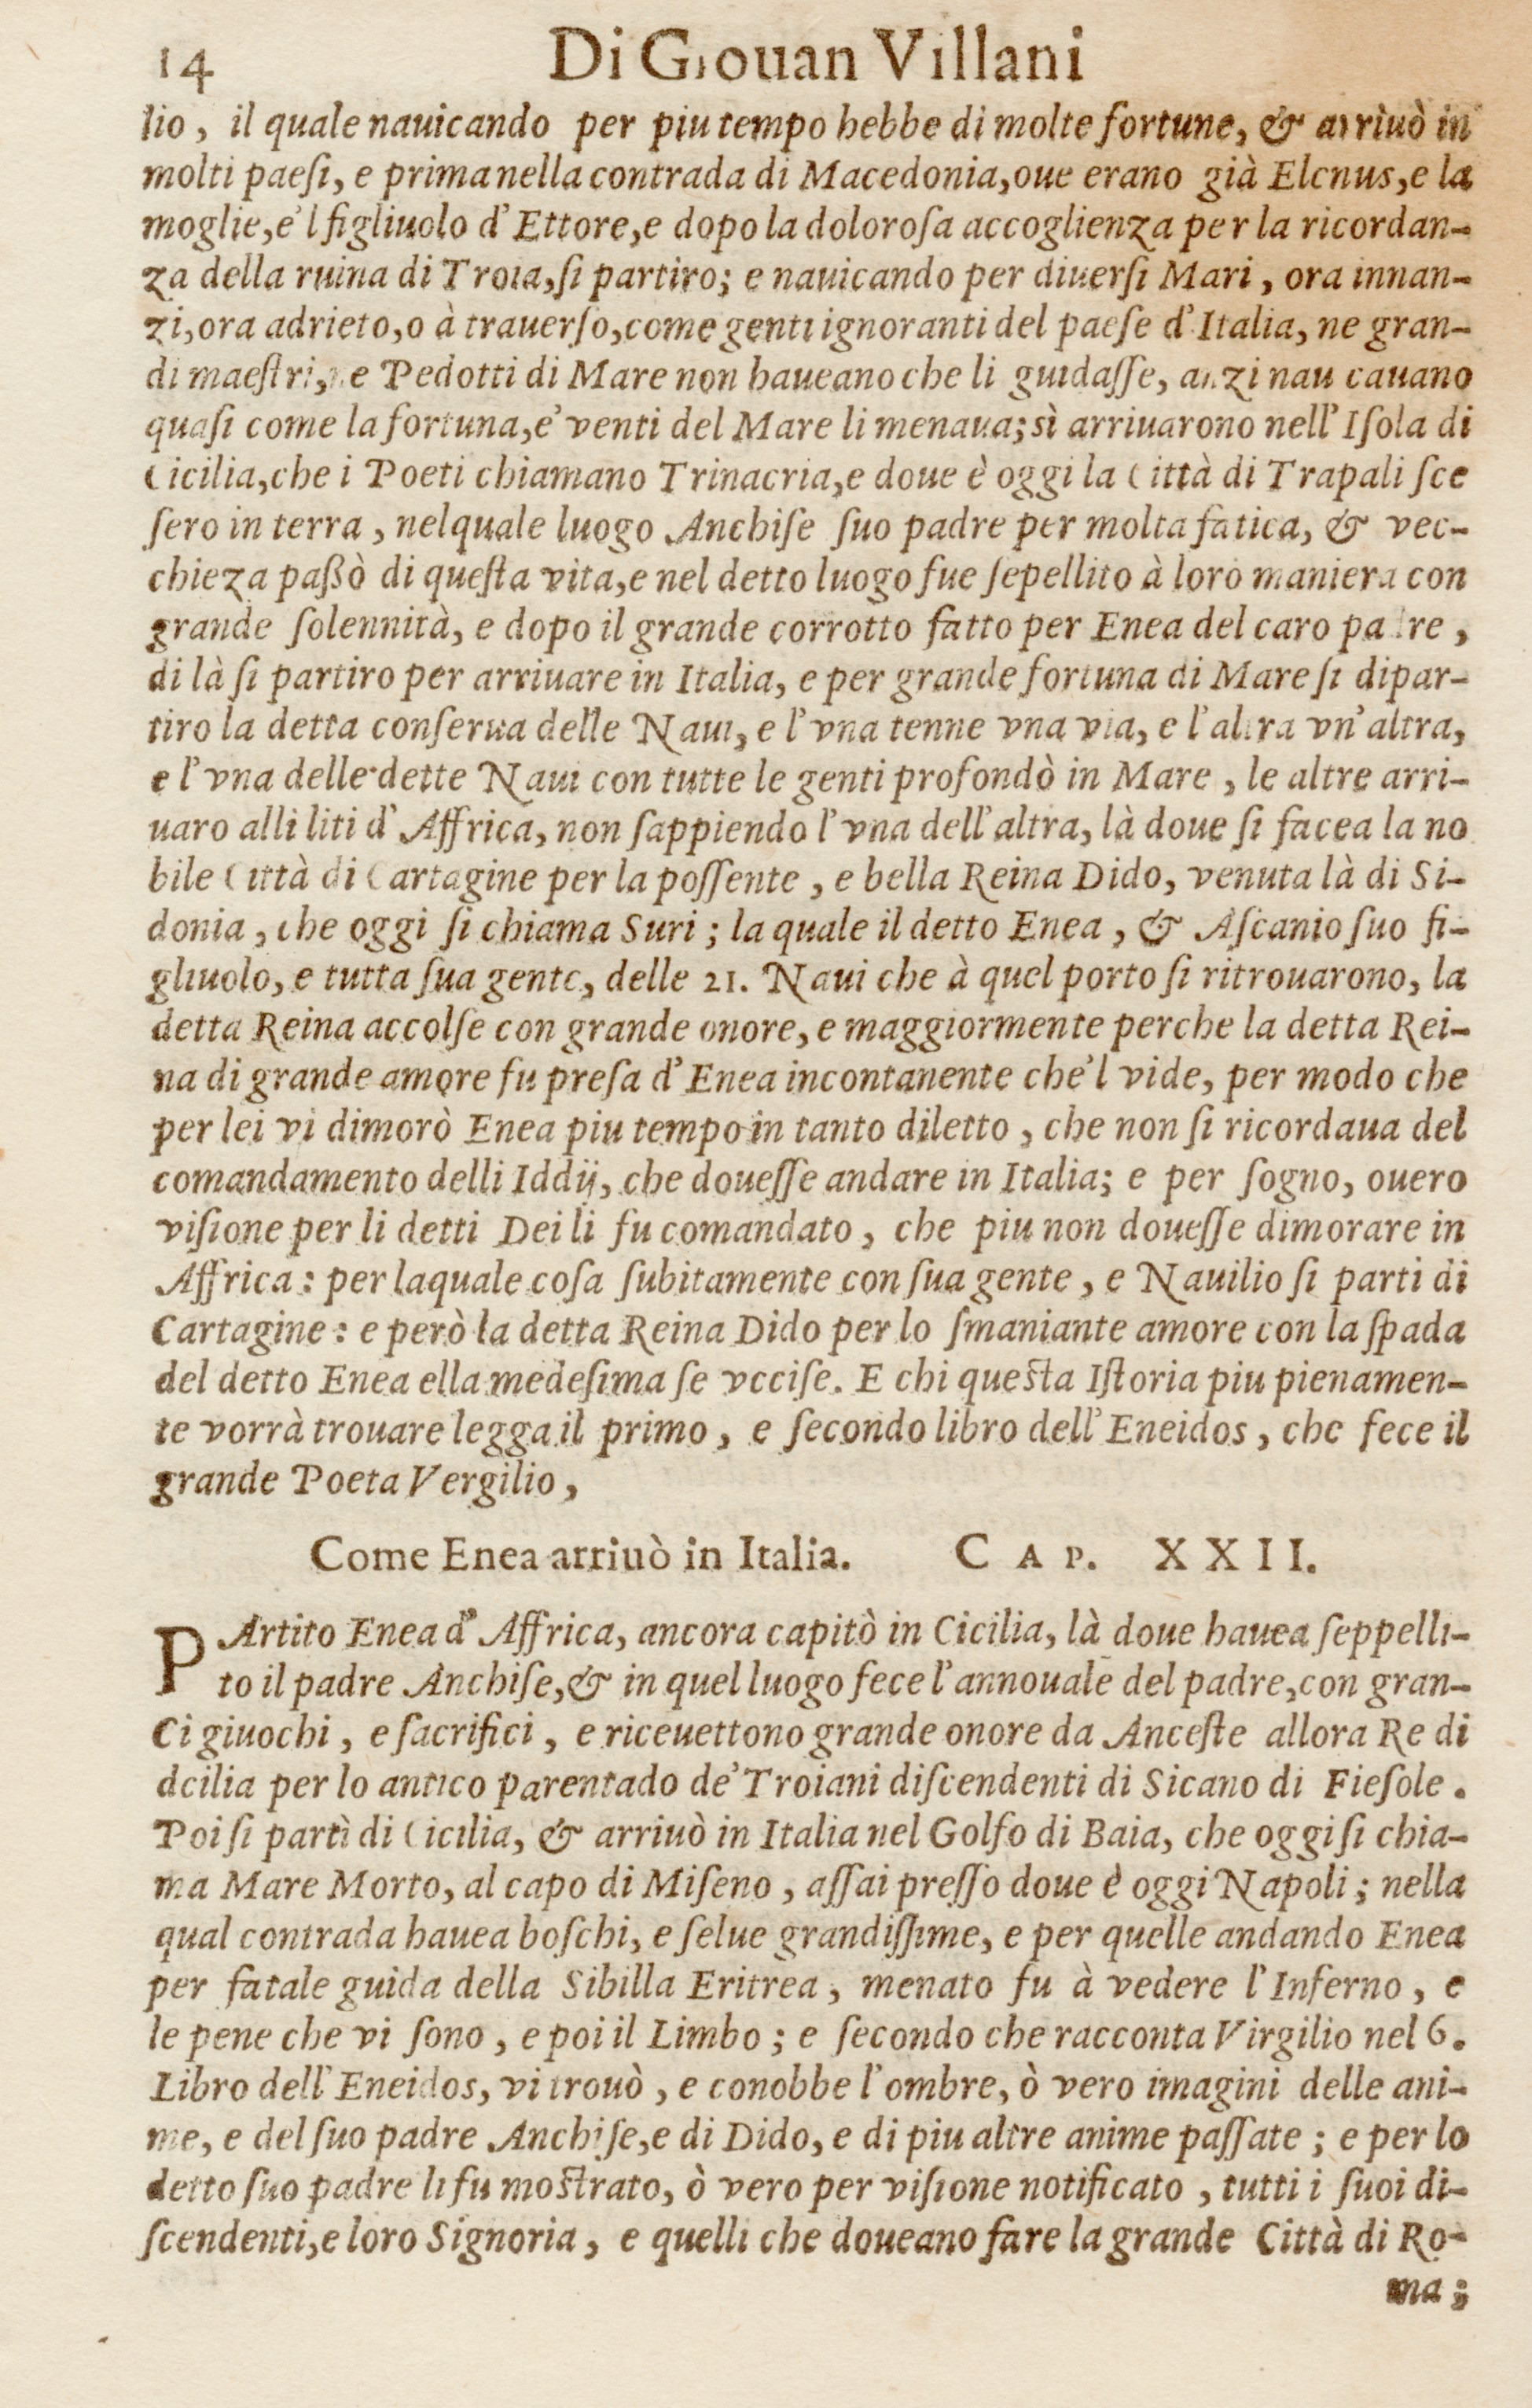 14 Di Giouan Villani
lio, il quale nauicando per piu tempo hebbe di molte fortune, & arriuò in
molti paeſi, e prima nella contrada di Macedonia, oue erano già Elenus, e la
moglie, e'l figliuolo d'Ettore, e dopo la doloroſa accoglienza per la ricordan-
za della ruina di Troia, ſi partiro; e nauicando per diuerſi Mari, ora innan-
zi, ora adrieto, o à trauerſo, come genti ignoranti del paeſe d'Italia, ne gran-
di maeſtri, ne Pedotti di Mare non haueano che li guidaſſe, anzi nauicauano
quaſi come la fortuna, e' venti del Mare li menaua; sì arriuarono nell'Iſola di
Cicilia, che i Poeti chiamano Trinacria, e doue è oggi la Città di Trapali ſce
ſero in terra, nelquale luogo Anchiſe ſuo padre per molta fatica, & vec-
chieza paßò di queſta vita, e nel detto luogo fue ſepellito à loro maniera con
grande ſolennità, e dopo il grande corrotto fatto per Enea del caro padre,
di là ſi partiro per arriuare in Italia, e per grande fortuna di Mare ſi dipar-
tiro la detta conſerua delle Naui, e l'vna tenne vna via, e l'altra vn'altra,
e l'vna delle dette Naui con tutte le genti profondò in Mare, le altre arri-
uaro alli liti d'Affrica, non ſappiendo l'vna dell'altra, là doue ſi facea la no
bile Città di Cartagine per la poſſente, e bella Reina Dido, venuta là di Si-
donia, che oggi ſi chiama Suri; la quale il detto Enea, & Aſcanio ſuo fi-
gliuolo, e tutta ſua gente, delle 21. Naui che à quel porto ſi ritrouarono, la
detta Reina accolſe con grande onore, e maggiormente perche la detta Rei-
na di grande amore fu preſa d'Enea incontanente che'l vide, per modo che
per lei vi dimorò Enea piu tempo in tanto diletto, che non ſi ricordaua del
comandamento delli Iddij, che doueſſe andare in Italia; e per ſogno, ouero
viſione per li detti Dei li fu comandato, che piu non doueſſe dimorare in
Affrica: per laquale coſa ſubitamente con ſua gente, e Nauilio ſi parti di
Cartagine: e però la detta Reina Dido per lo ſmaniante amore con la ſpada
del detto Enea ella medeſima ſe vcciſe. E chi queſta Iſtoria piu pienamen-
te vorrà trouare legga il primo, e ſecondo libro dell'Eneidos, che fece il
grande Poeta Vergilio,
Come Enea arriuò in Italia. CAP. XXII.
PArtito Enea d'Affrica, ancora capitò in Cicilia, là doue hauea ſeppelli-
to il padre Anchiſe, & in quel luogo fece l'annouale del padre, con gran-
Ci giuochi, e ſacrifici, e riceuettono grande onore da Anceſte allora Re di
dcilia per lo antico parentado de' Troiani diſcendenti di Sicano di Fieſole.
Poi ſi partì di Cicilia, & arriuò in Italia nel Golfo di Baia, che oggi ſi chia-
ma Mare Morto, al capo di Miſeno, aſſai preſſo doue è oggi Napoli; nella
qual contrada hauea boſchi, e ſelue grandiſſime, e per quelle andando Enea
per fatale guida della Sibilla Eritrea, menato fu à vedere l'Inferno, e
le pene che vi ſono, e poi il Limbo; e ſecondo che racconta Virgilio nel 6.
Libro dell'Eneidos, vi trouò, e conobbe l'ombre, ò vero imagini delle ani-
me, e del ſuo padre Anchiſe, e di Dido, e di piu altre anime paſſate; e per lo
detto ſuo padre li fu moſtrato, ò vero per viſione notificato, tutti i ſuoi di-
ſcendenti, e loro Signoria, e quelli che doueano fare la grande Città di Ro-
ma;